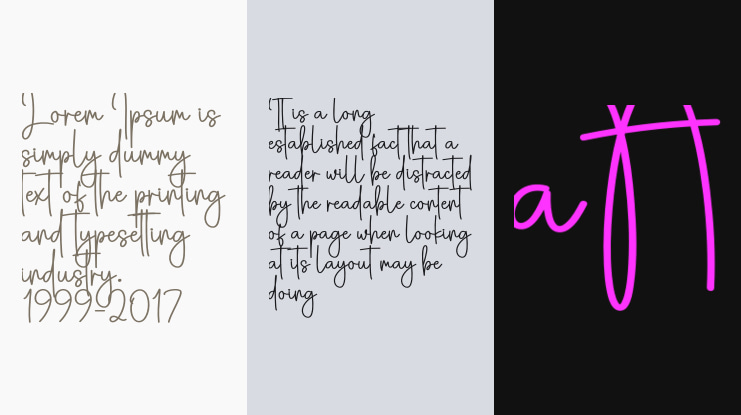 Lorem Ipsum is
simply dummy
text of the printing
and typesetting
industry.
1999-2017
It is a long
established fact that a
reader will be distracted
by the readable content
of a page when looking
at its layout may be
doing
a